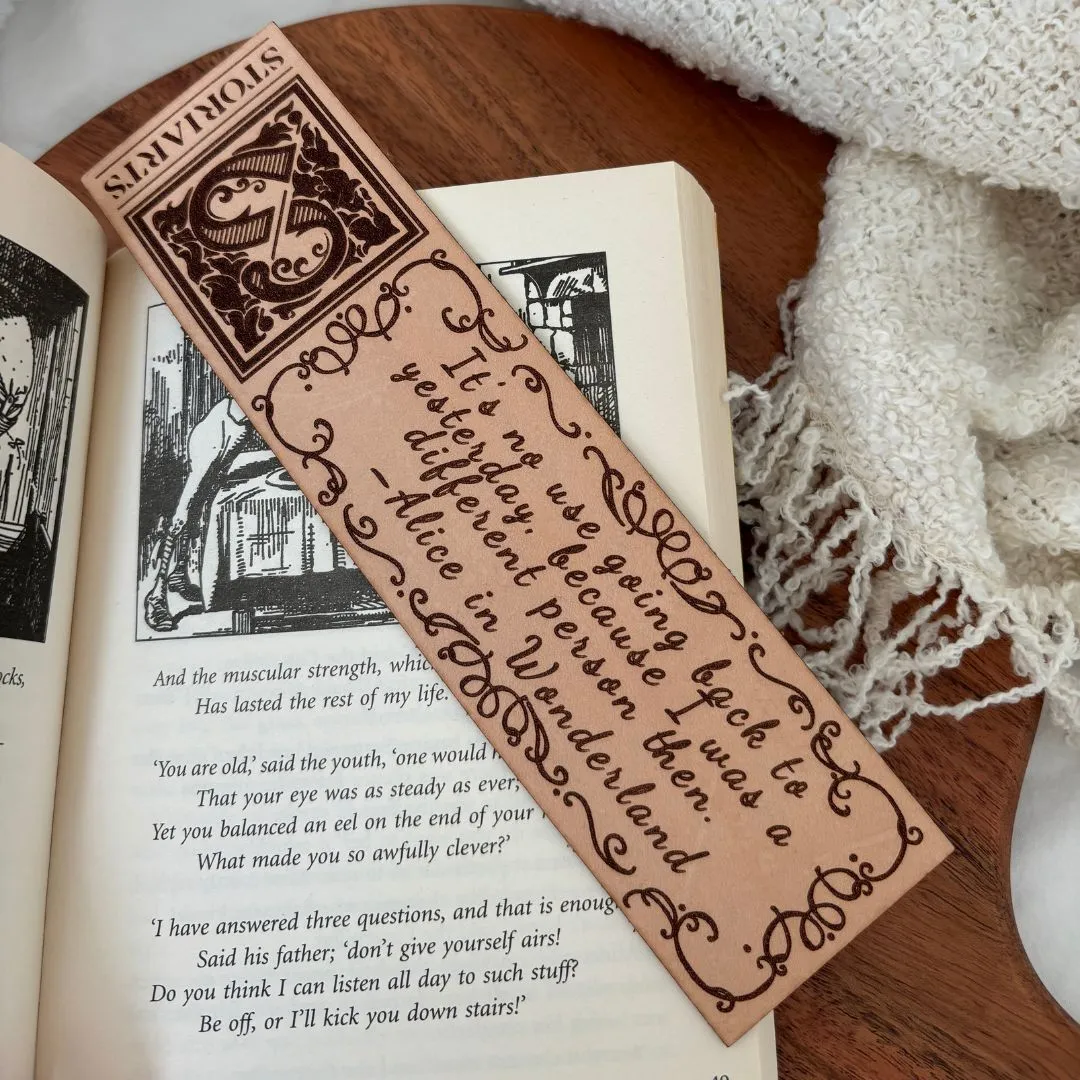 STORIARTS
S
It's no use going back to
yesterday, because I was a
different person then.
-Alice in Wonderland
And the muscular strength,
Has lasted the rest of my life.
'You are old,' said the youth, 'one would
That your eye was as steady as ever;
Yet you balanced an eel on the end of your
What made you so awfully clever?'
'I have answered three questions, and that is
Said his father; 'don't give yourself airs!
Do you think I can listen all day to such stuff?
Be off, or I'll kick you down stairs!'